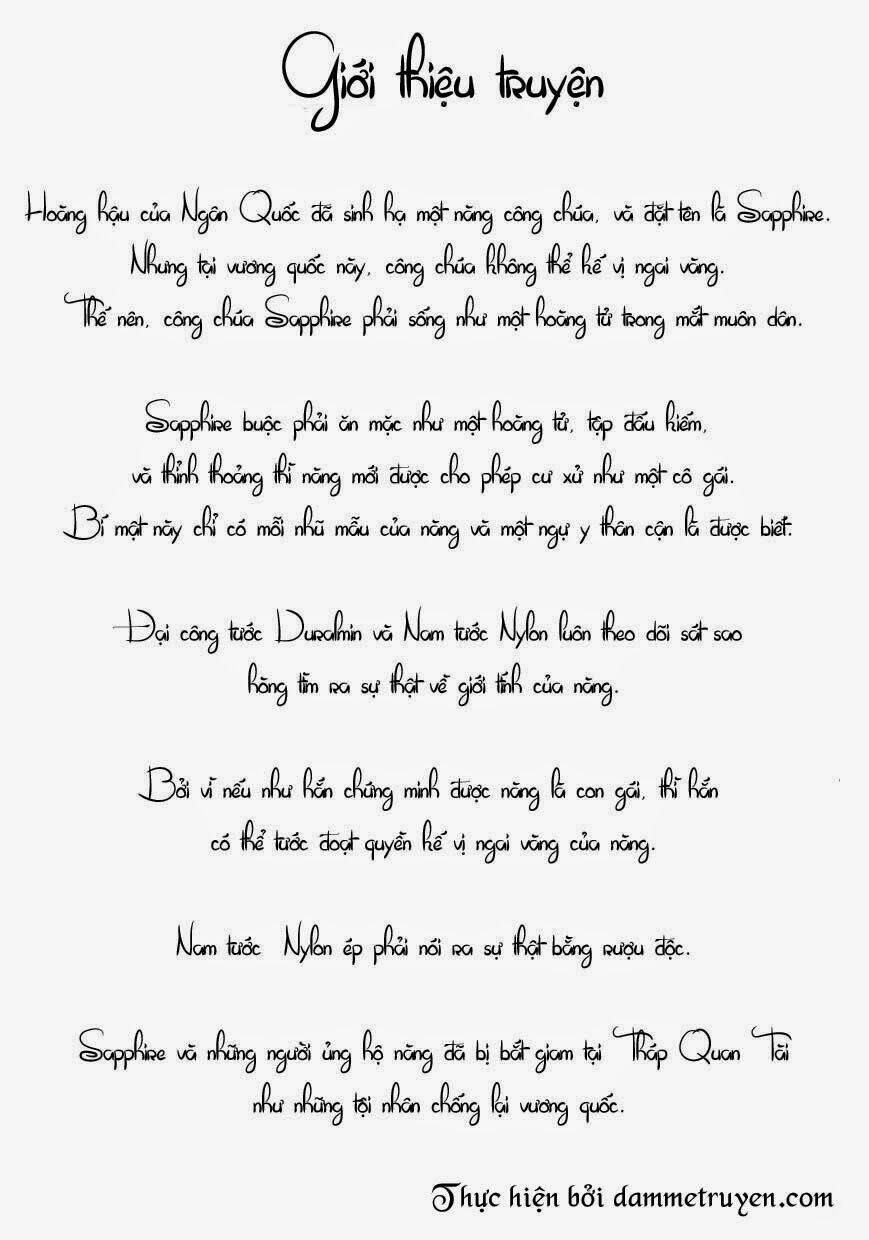 Giới thiệu truyện
Hoàng hậu của Ngân Quốc đã sinh hạ một nàng công chúa, và đặt tên là Sapphire.
Nhưng tại vương quốc này, công chúa không thể kế vị ngai vàng.
Thế nên, công chúa Sapphire phải sống như một hoàng tử trong mắt muôn dân.
Sapphire buộc phải ăn mặc như một hoàng tử, tập đấu kiếm,
và thỉnh thoảng thì nàng mới được cho phép cư xử như một cô gái.
Bí mật này chỉ có mỗi nhũ mẫu của nàng và một ngự y thân cận là được biết.
Đại công tước Duralmin và Nam tước Nylon luôn theo dõi sát sao
hòng tìm ra sự thật về giới tính của nàng.
Bởi vì nếu như hắn chứng minh được nàng là con gái, thì hắn
có thể tước đoạt quyền kế vị ngai vàng của nàng.
Nam tước Nylon ép phải nói ra sự thật bằng rượu độc.
Sapphire và những người ủng hộ nàng đã bị bắt giam tại Tháp Quan Tài
như những tội nhân chống lại vương quốc.
Thực hiện bởi dammetruyen.com